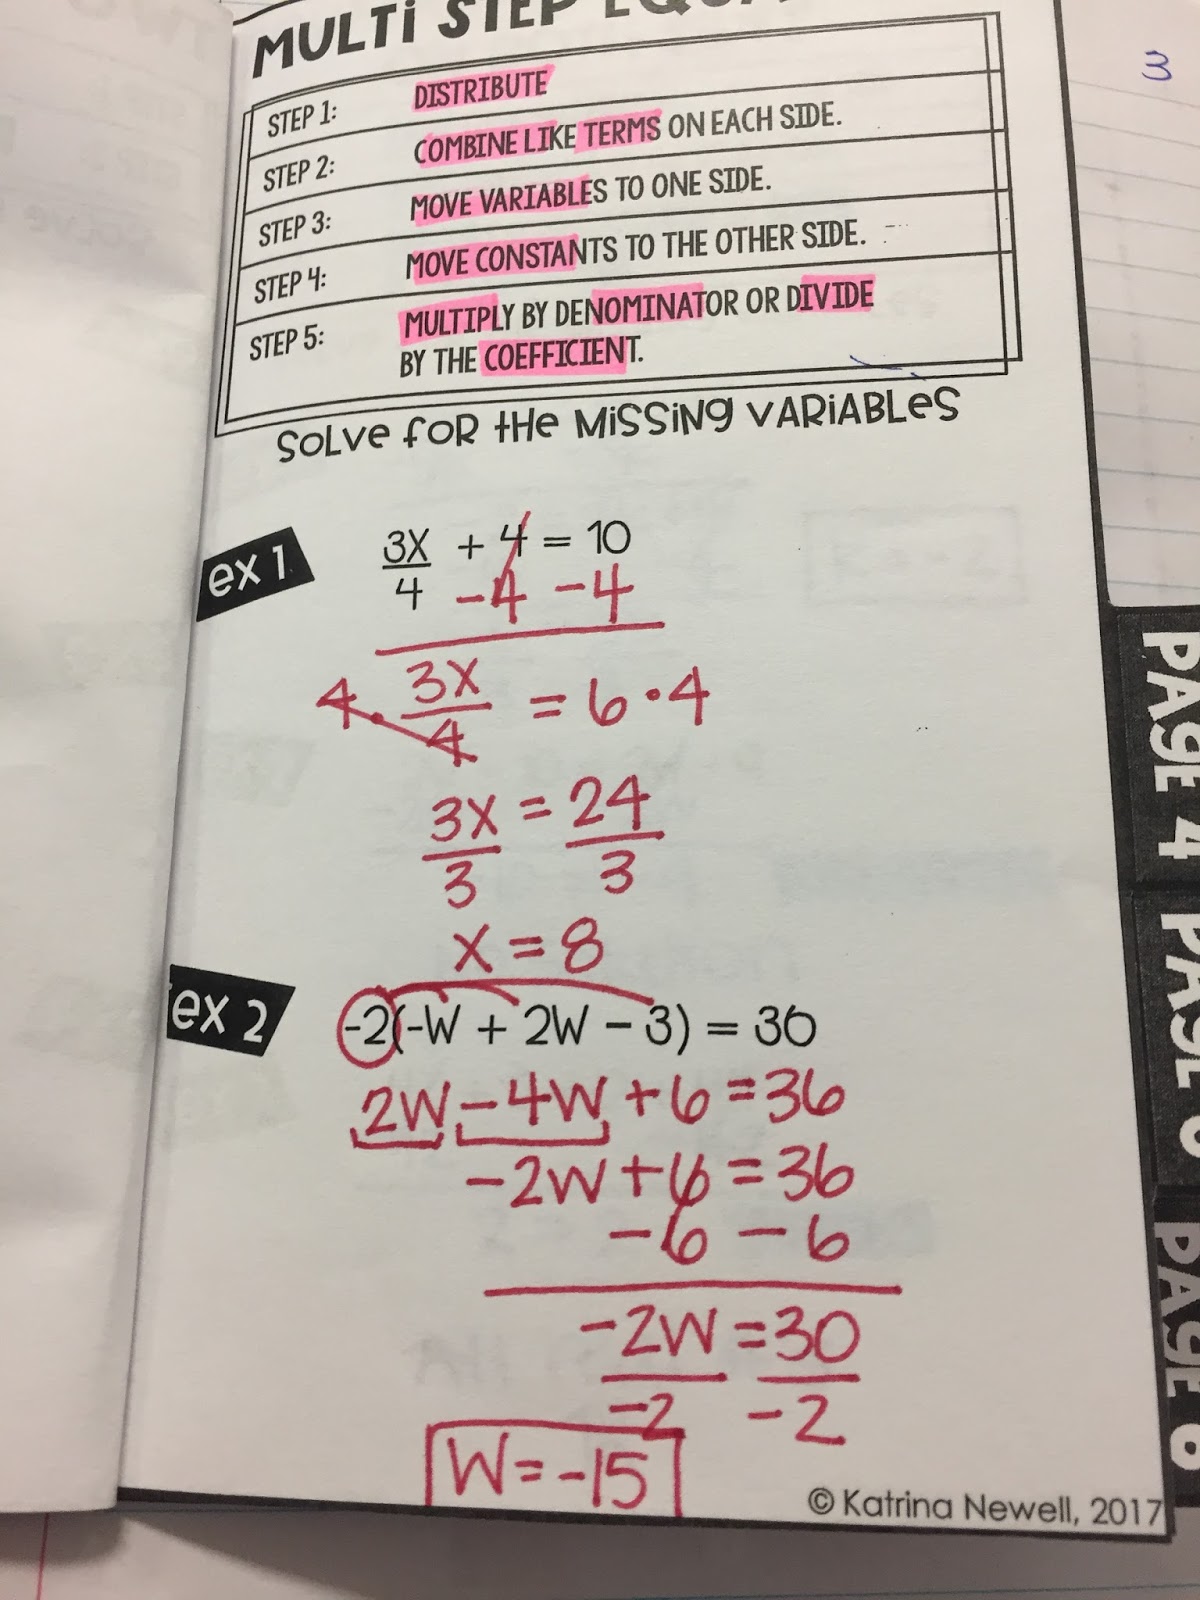 MULTi STEP
STEP 1: DISTRIBUTE
STEP 2: COMBINE LIKE TERMS ON EACH SIDE.
STEP 3: MOVE VARIABLES TO ONE SIDE.
STEP 4: MOVE CONSTANTS TO THE OTHER SIDE.
STEP 5: MULTIPLY BY DENOMINATOR OR DIVIDE
BY THE COEFFICIENT.
SOLVE FOR THE MISSING VARIABLES
ex 1
3X/4 + 4 = 10
-4 -4
4 · 3X/4 = 6 · 4
3X/3 = 24/3
X = 8
ex 2
-2(-W + 2W - 3) = 36
2W - 4W + 6 = 36
-2W + 6 = 36
- 6 - 6
-2W/-2 = 30/-2
W = -15
© Katrina Newell, 2017
3
PAGE 4
PAGE
PAGE